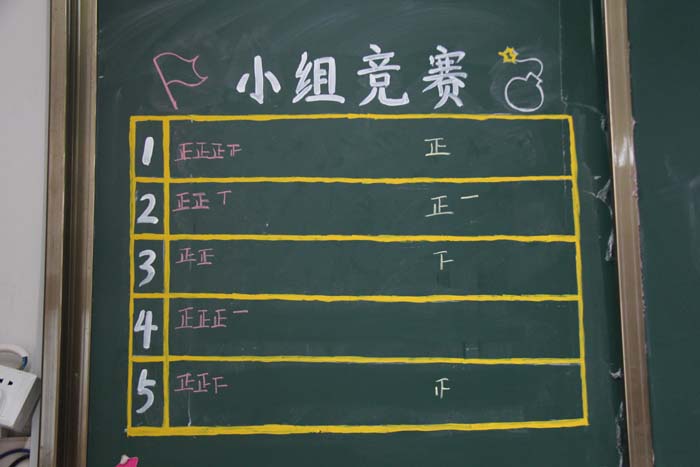 小组竞赛
1 正正正 正
2 正正 正一
3 正正
4 正正正一
5 正正